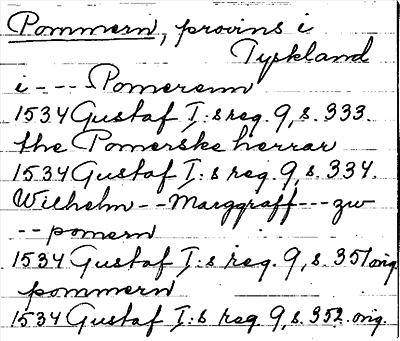 Pommern, provins i
Tyskland
i - - - Pomerenn
1534 Gustaf I:s reg. 9, s. 333.
the Pomerske herrar
1534 Gustaf I:s reg. 9, s. 334.
Wilhelm - - Marggraff - - - zw
- - pomern
1534 Gustaf I:s reg. 9, s. 351 orig.
pommern
1534 Gustaf I:s reg. 9, s. 352. orig.